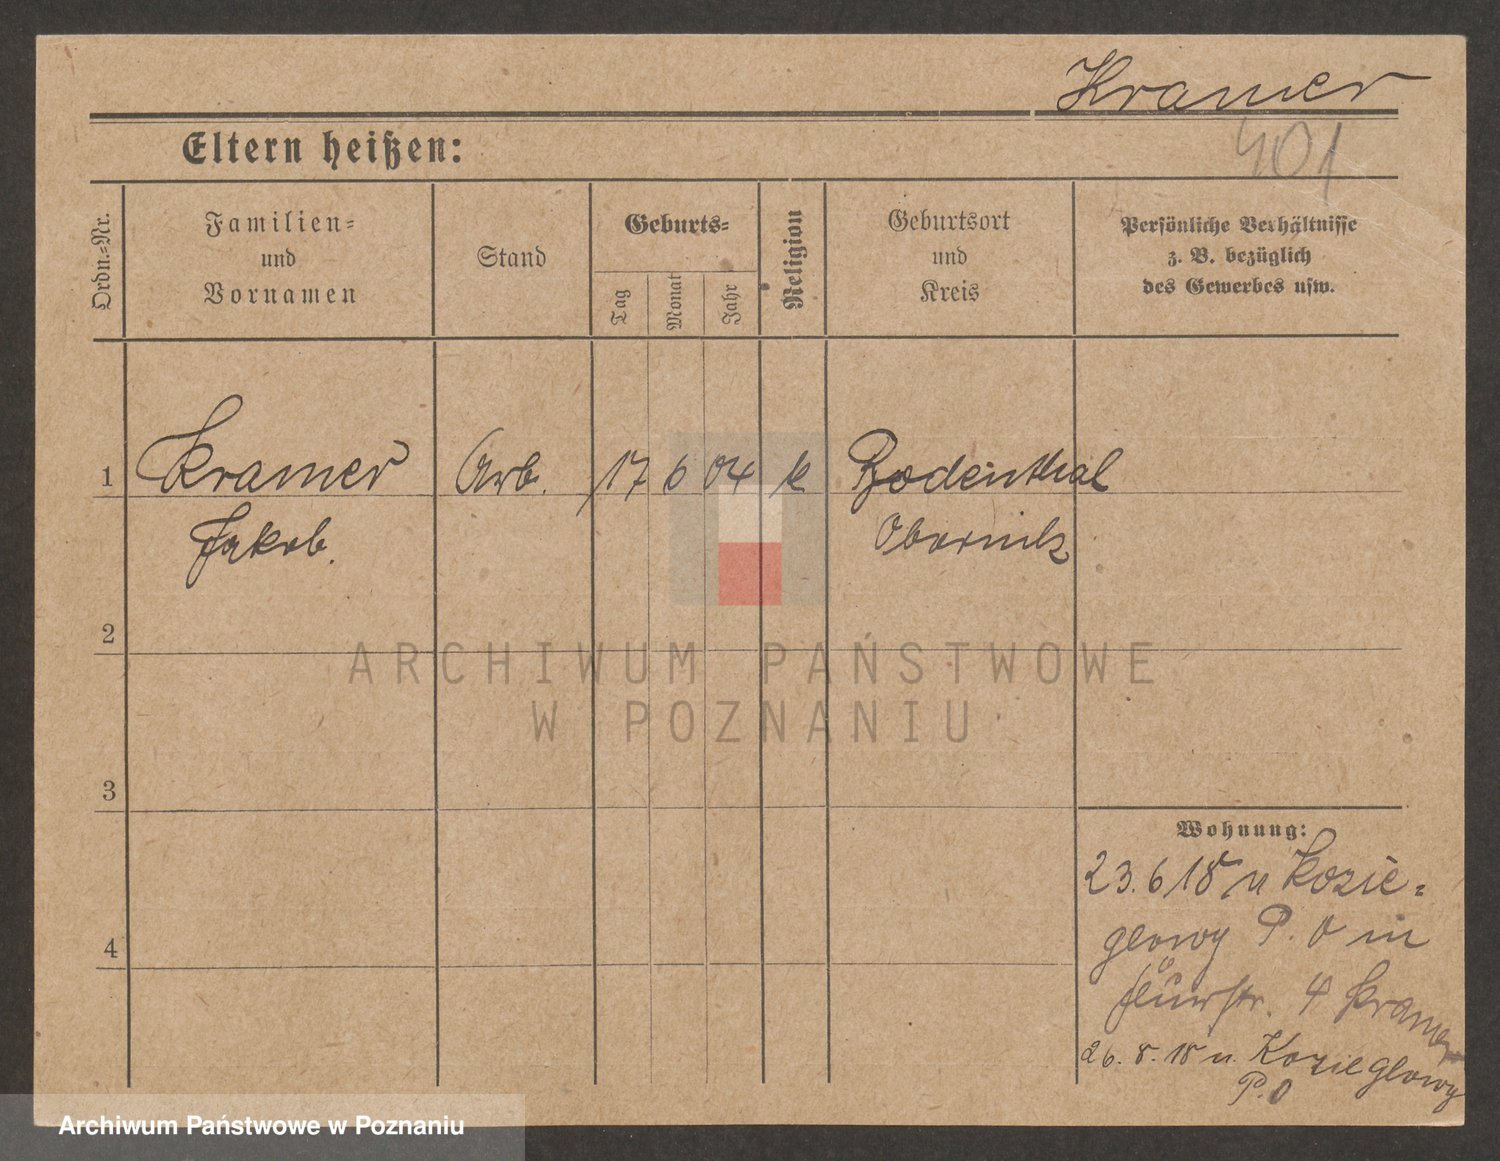 Kramer
401
Eltern heißen:
Ordn.-Nr.
Familien-
und
Vornamen
Stand
Geburts-
Tag
Monat
Jahr
Religion
Geburtsort
und
Kreis
Persönliche Verhältnisse
z. B. bezüglich
des Gewerbes usw.
1 Kramer Arb. 17 6 04 k Bodenthal
Jakob. Obornik
2
3
4
Wohnung:
23.6 18 n Kozie-
glowy P. O in
4 Kramer
26. 8. 18 n. Kozieglowy
P.O
ARCHIWUM PAŃSTWOWE
W POZNANIU
Archiwum Państwowe w Poznaniu